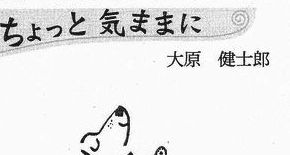 ちょっと 気ままに
大原 健士郎